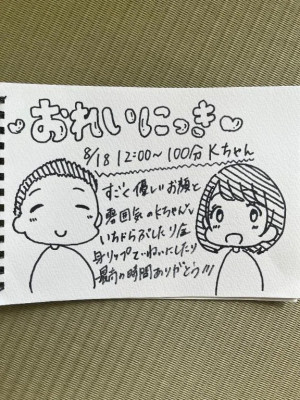 おれいにっき
8/18 12:00〜100分 Kちゃん
すごく優しいお顔と
雰囲気のKちゃん
いちゃらぶしたり
リップでていねいにしたり
最高の時間ありがとう!!!